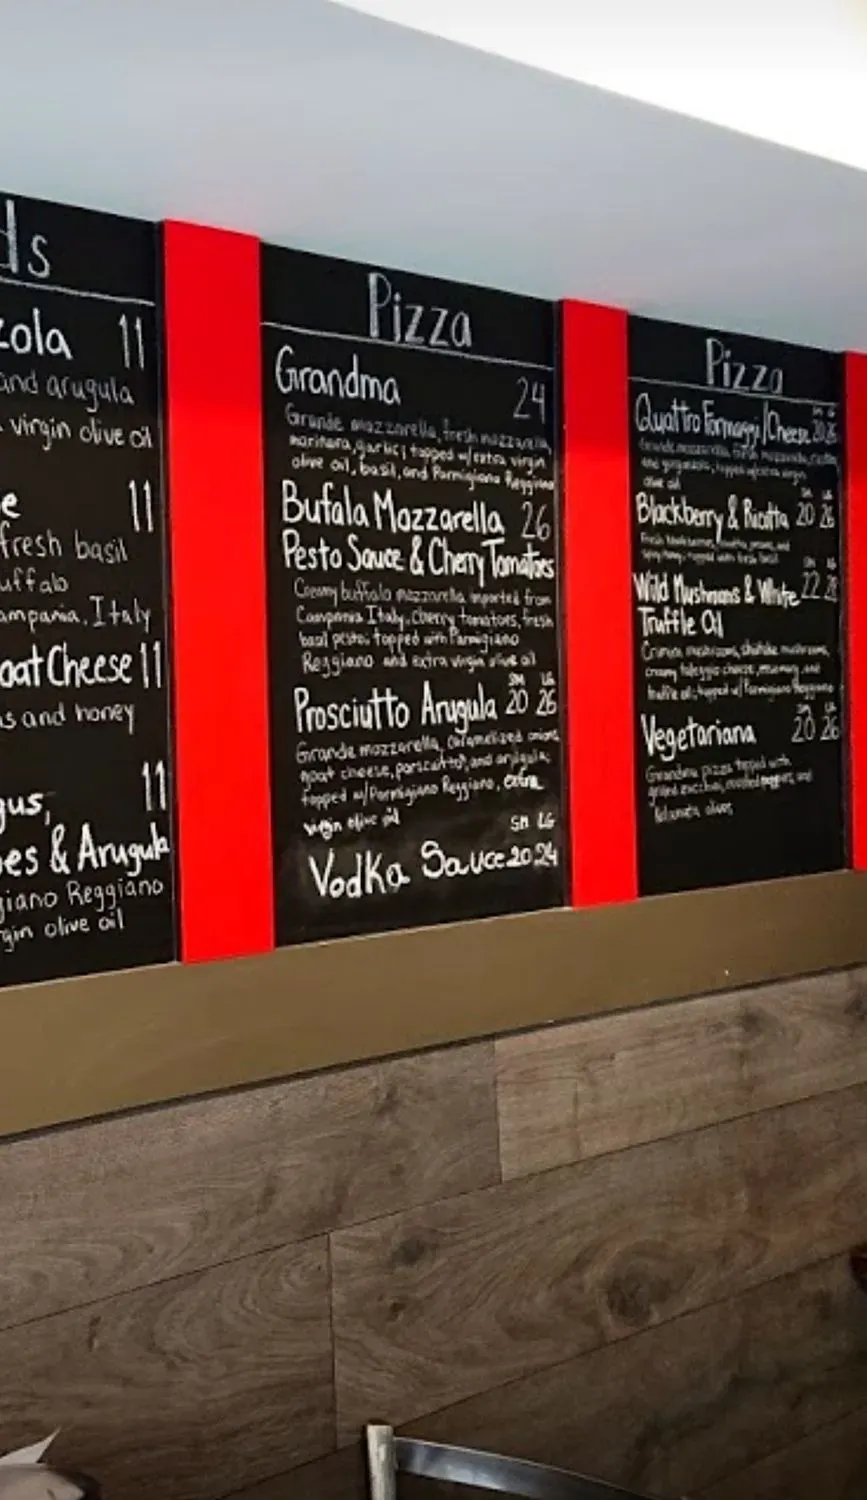 ds
zola 11
and arugula
virgin olive oil
e 11
fresh basil
uffalo
ampania, Italy
oat Cheese 11
s and honey
11
gus,
oes & Arugula
giano Reggiano
gin olive oil
Pizza
Grandma 24
Grande mozzarella, fresh mozzarella,
marinara, garlic; topped w/extra virgin
olive oil, basil, and Parmigiano Reggiano
Bufala Mozzarella 26
Pesto Sauce & Cherry Tomatoes
Creamy buffalo mozzarella imported from
Campania Italy, cherry tomatoes, fresh
basil pesto; topped with Parmigiano
Reggiano and extra virgin olive oil
SM LG
Prosciutto Arugula 20 26
Grande mozzarella, caramelized onions,
goat cheese, and arugula;
topped w/Parmigiano Reggiano, extra
virgin olive oil
SM LG
Vodka Sauce 20 24
Pizza
SM LG
Quattro Formaggi/Cheese 20 26
Grande mozzarella, fresh mozzarella,
topped w/extra virgin
olive oil
SM LG
Blackberry & Ricotta 20 26
Fresh blackberries, ricotta,
spicy honey; topped with fresh basil
SM LG
Wild Mushrooms & White 22 28
Truffle Oil
mushrooms, shiitake mushrooms,
creamy taleggio cheese, rosemary, and
truffle oil; topped w/ Parmigiano Reggiano
SM LG
Vegetariana 20 26
Grandma pizza topped with
grilled zucchini, roasted peppers, and
kalamata olives